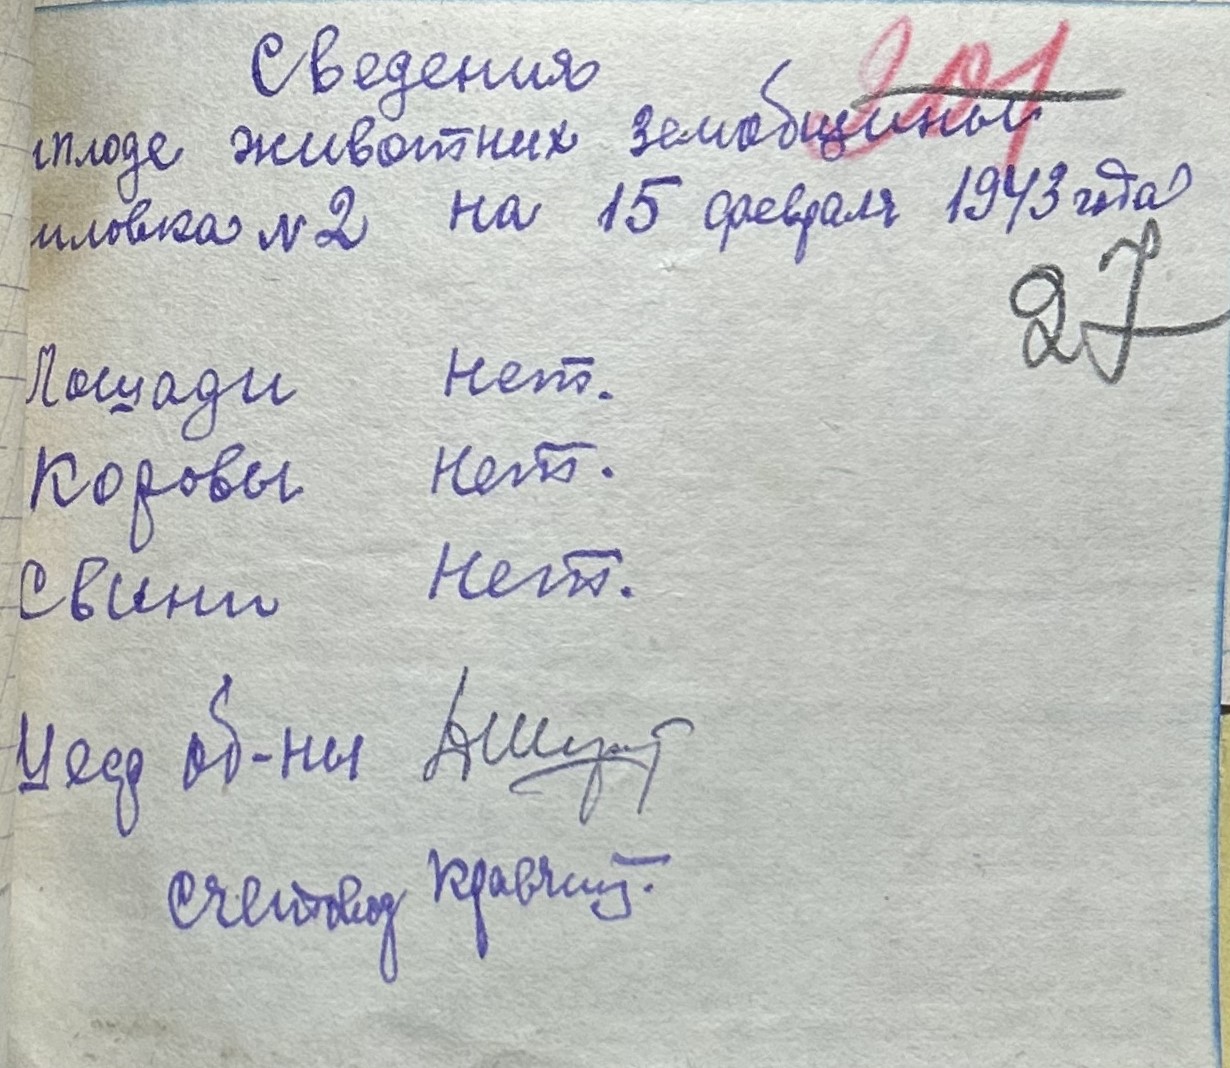 Сведения
201
плоде животных земобщины
иловка № 2 на 15 февраля 1943 года
27
Лошади Нет.
Коровы Нет.
Свини Нет.
об-ны
Счетовод